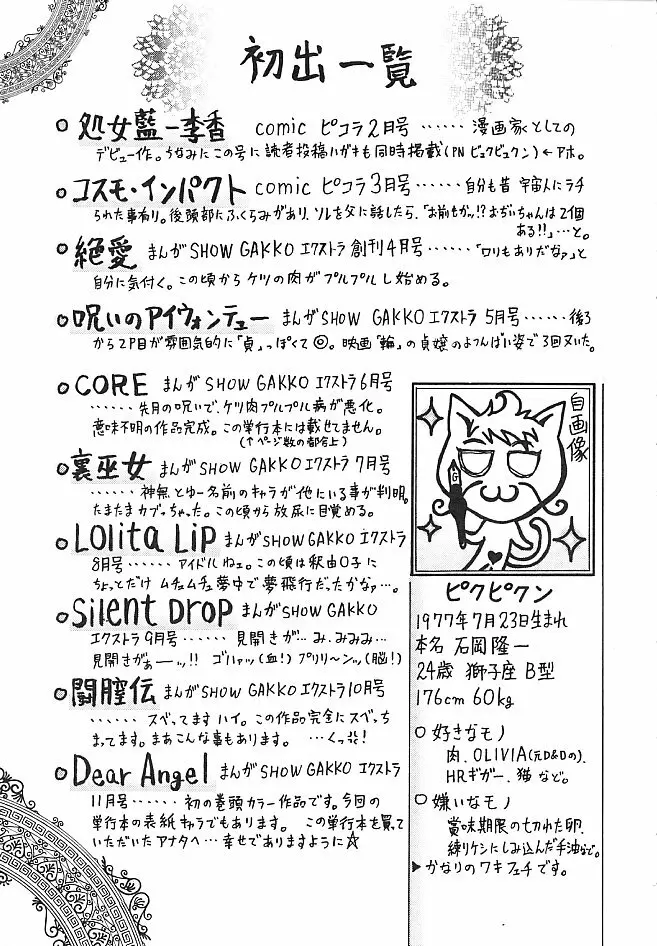 初出一覧
○ 処女藍－李香 comic ピコラ2月号 ‥‥‥ 漫画家としての
デビュー作。ちなみにこの号に読者投稿ハガキも同時掲載(PN ピュクピュクン)←アホ。
○ コスモ・インパクト comic ピコラ3月号 ‥‥‥自分も昔 宇宙人にラチ
られた事有り。後頭部にふくらみがあり、ソレを父に話したら、「お前もかッ!?おぢいちゃんは2個
ある!!」…と。
○ 絶愛 まんがSHOW GAKKO エクストラ 創刊4月号 ‥‥‥「ロリもありだなァ」と
自分に気付く。この頃からケツの肉がプルプルし始める。
○ 呪いのアイウォンテュー まんがSHOW GAKKO エクストラ 5月号 ‥‥‥後3
から2P目が雰囲気的に「貞」っぽくて◎。映画「輪」の貞嬢のよつんばい姿で3回ヌいた。
○ CORE まんがSHOW GAKKO エクストラ6月号
‥‥‥ 先月の呪いで、ケツ肉プルプル病が悪化。
意味不明の作品完成。この単行本には載せてません。
(↑ページ数の都合上)
○ 裏巫女 まんがSHOW GAKKO エクストラ 7月号
‥‥‥ 神無とゆー名前のキャラが他にいる事が判明。
たまたまカブっちゃった。この頃から放尿に目覚める。
○ Lolita Lip まんがSHOW GAKKO エクストラ
8月号 ‥‥‥ アイドルねェ。この頃は釈由〇子に
ちょっとだけ ムチュムチュ夢中で夢飛行だったかなァ…。
○ Silent Drop まんがSHOW GAKKO
エクストラ 9月号 ‥‥‥ 見開きが… み、みみみ…
見開きがぁーッ!! ゴハァッ(血!) プリリ〜ンッ(脳!)
○ 闘膣伝 まんがSHOW GAKKO エクストラ10月号
‥‥‥ スベってます ハイ。この作品完全にスベっち
まってます。まあこんな事もあります。 …くっ!
○ Dear Angel まんがSHOW GAKKO エクストラ
11月号‥‥‥ 初の巻頭カラー作品です。今回の
単行本の表紙キャラでもあります。 この単行本を買って
いただいたアナタへ… 幸せでありますように☆
自画像
G
ピクピクン
1977年7月23日生まれ
本名 石岡隆一
24歳 獅子座 B型
176cm 60kg
○ 好きなモノ
肉、OLIVIA(元D&Dの)、
HRギガー、猫 など。
○ 嫌いなモノ
賞味期限の切れた卵、
練りケシにしみ込んだ手油など。
▶かなりのワキフェチです。